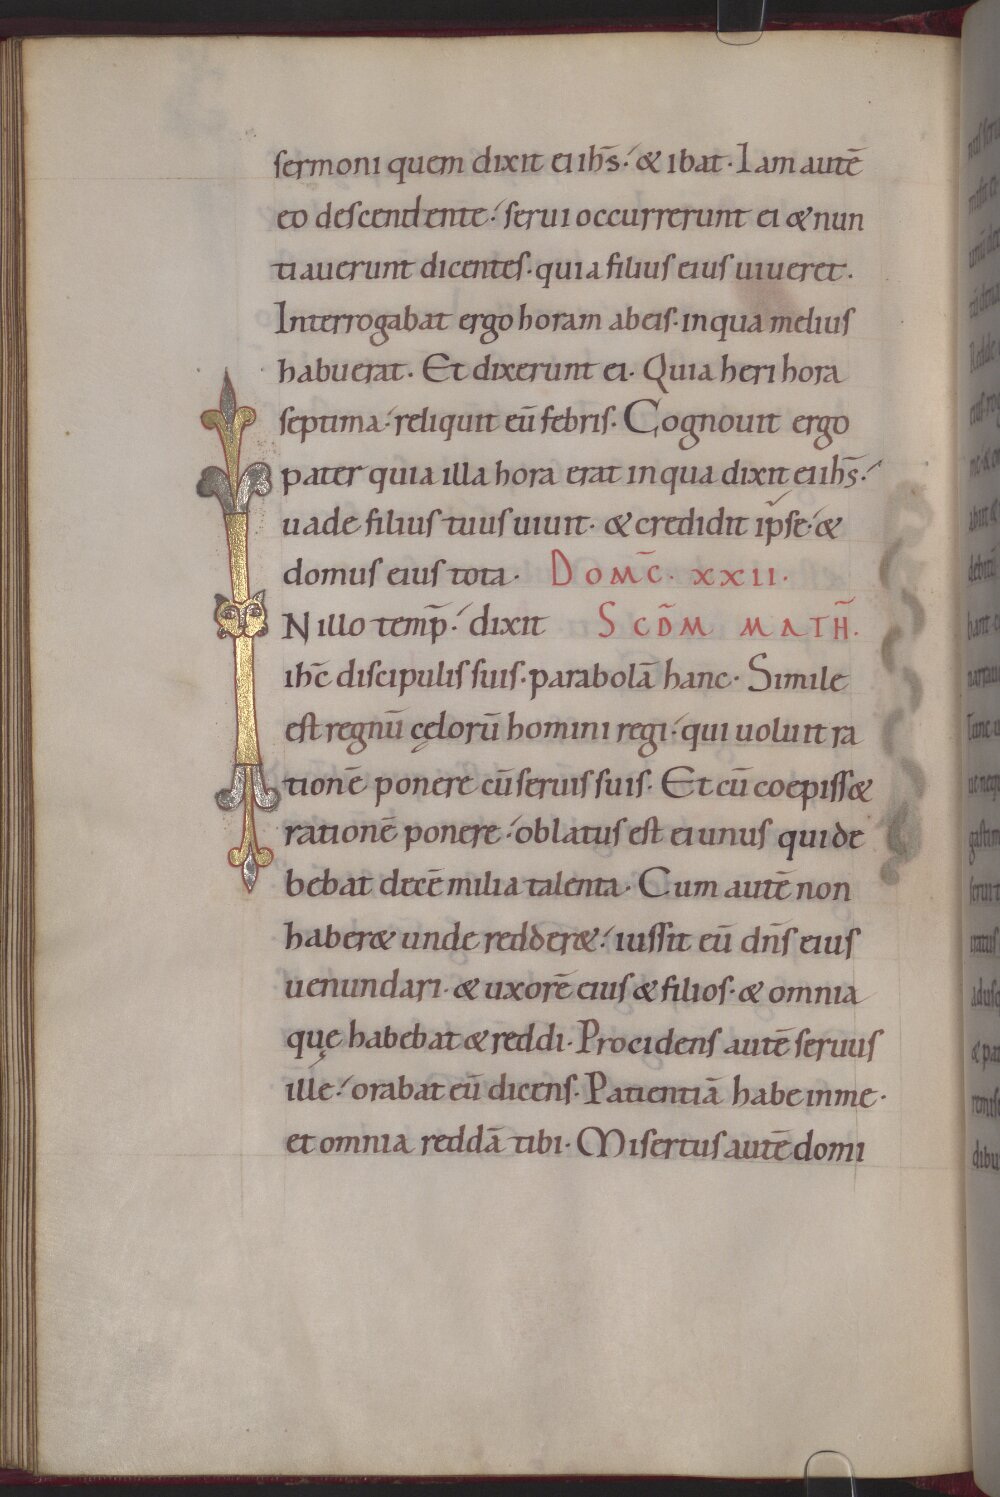 sermoni quem dixit ei ih̄s. & ibat. Iam autē
eo descendente. serui occurrerunt ei & nun
tiauerunt dicentes. quia filius eius uiueret.
Interrogabat ergo horam ab eis. in qua melius
habuerat. Et dixerunt ei. Quia heri hora
septima. reliquit eū febris. Cognouit ergo
pater quia illa hora erat in qua dixit ei ih̄s.
uade filius tuus uiuit. & credidit ip̄se. &
domus eius tota. DOM̄C. XXII.
IN illo temp̄. dixit SCD̄M MATH̄.
ih̄c discipulis suis. parabolā hanc. Simile
est regnū cęlorū homini regi. qui uoluit ra
tionē ponere cū seruis suis. Et cū coepiss&
rationē ponere. oblatus est ei unus qui de
bebat decē milia talenta. Cum autē non
haber& unde redder&. iussit eū dn̄s eius
uenundari. & uxorē eius & filios. & omnia
quę habebat & reddi. Procidens autē seruus
ille. orabat eū dicens. Patientiā habe in me.
et omnia reddā tibi. Misertus autē domi